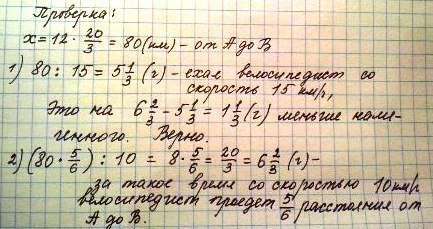 Проверка:
x = 12 · 20/3 = 80 (км) – от А до В
1) 80 : 15 = 5 1/3 (г) – ехал велосипедист со
скорость 15 км/г,
Это на 6 2/3 – 5 1/3 = 1 1/3 (г) меньше наме-
ченного. Верно.
2) (80 · 5/6) : 10 = 8 · 5/6 = 20/3 = 6 2/3 (г) –
за такое время со скоростью 10 км/г
велосипедист проедет 5/6 расстояние от
А до В.